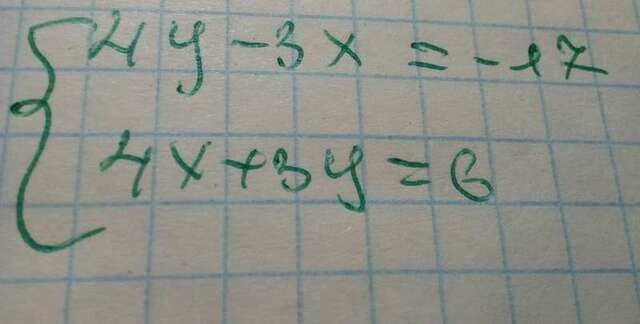 4y-3x=-17
4x+3y=6